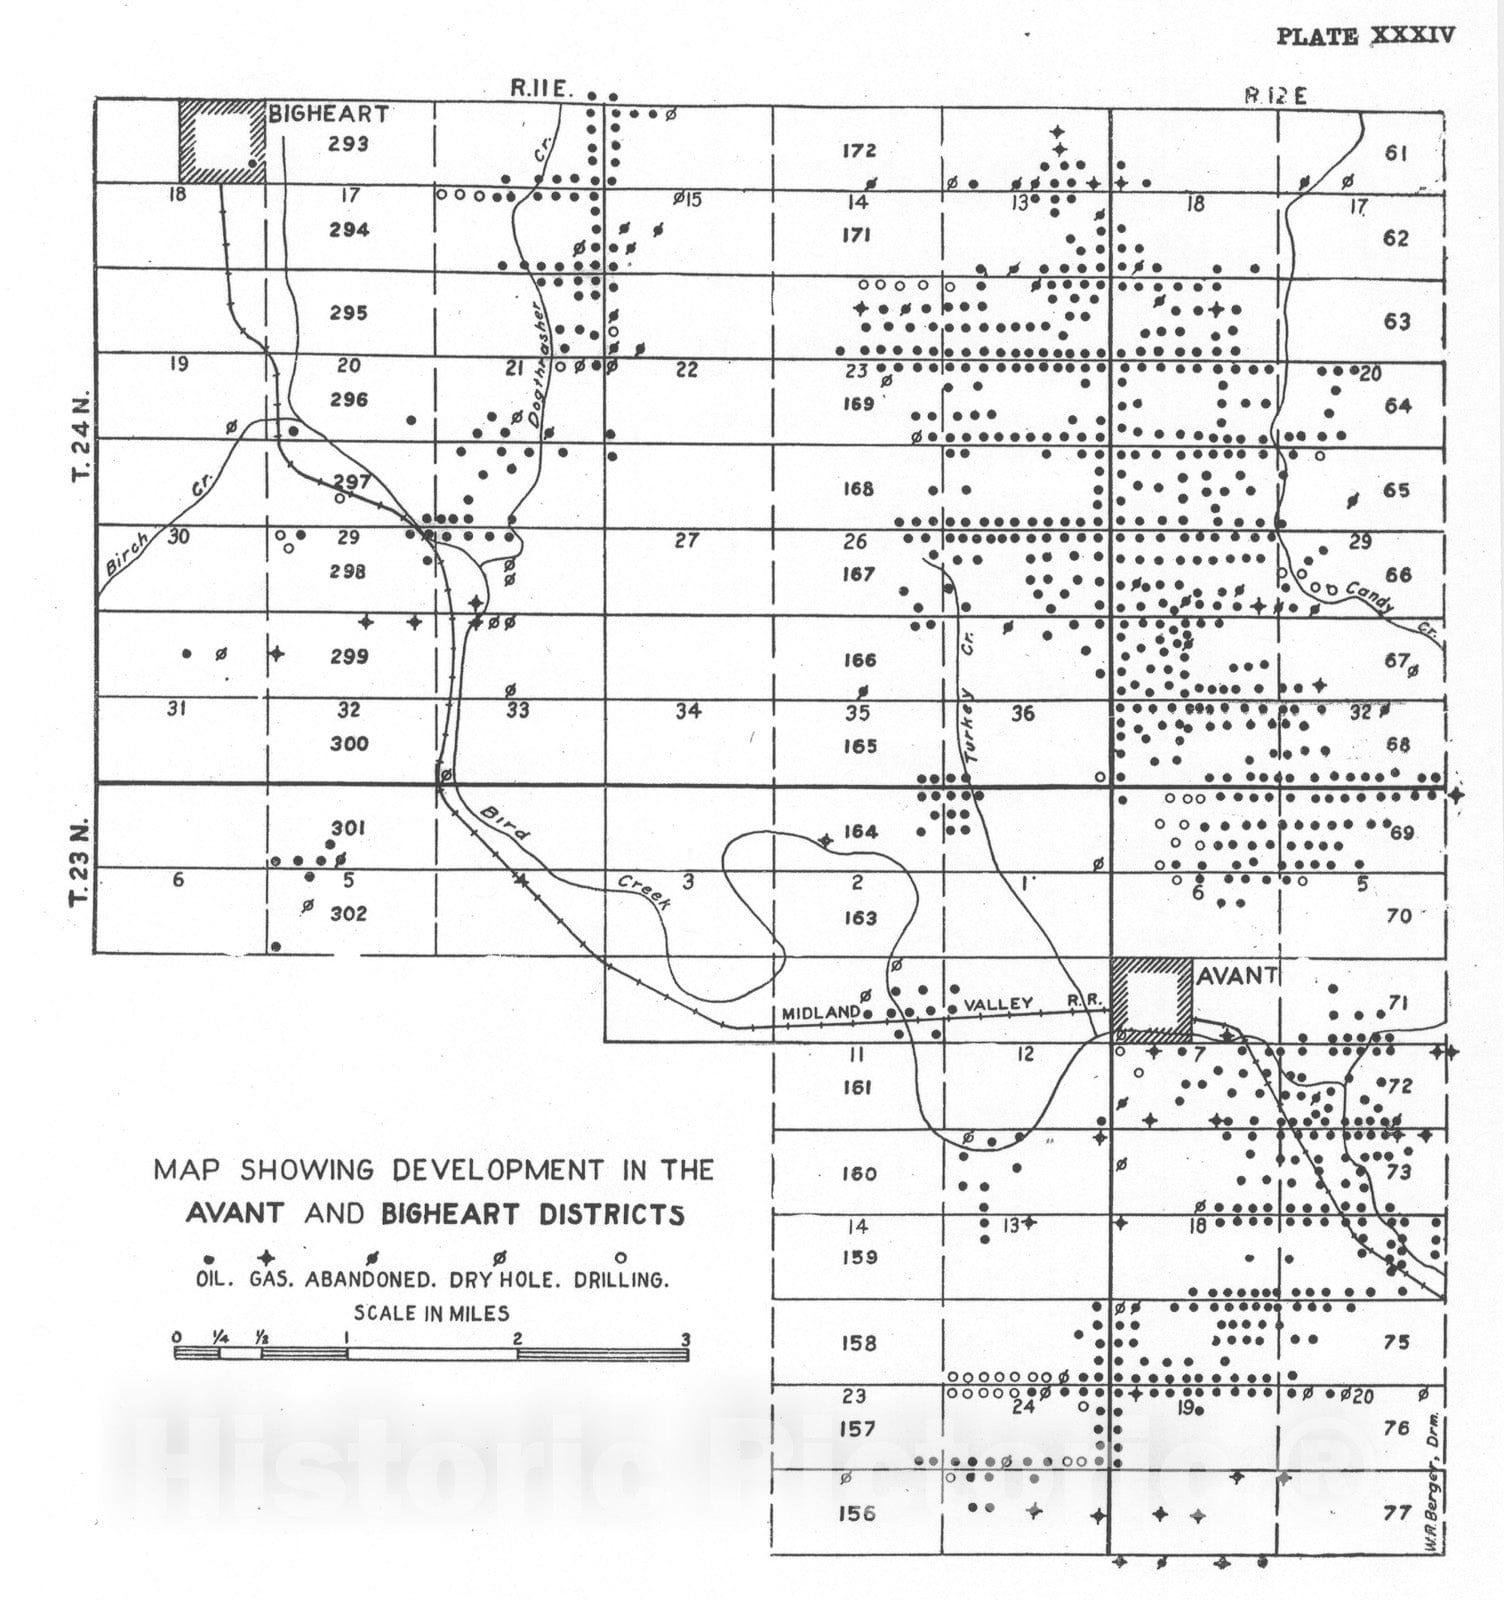 PLATE XXXIV
R.11 E.
R.12 E
BIGHEART
293
172
61
18
17
15
14
13
18
17
294
171
62
295
63
19
20
21
22
23
20
296
169
64
T. 24 N.
Dogthrasher
Cr.
297
168
65
Birch
Cr.
30
29
27
26
29
298
167
66
Candy
Cr.
299
166
67
Turkey
Cr.
31
32
33
34
35
36
32
300
165
68
Bird
Creek
T. 23 N.
301
164
69
6
5
3
2
1
6
5
302
163
70
AVANT
71
MIDLAND
VALLEY
R.R.
11
12
7
161
72
160
73
14
13
18
159
158
75
23
24
19
20
157
76
156
77
MAP SHOWING DEVELOPMENT IN THE
AVANT AND BIGHEART DISTRICTS
OIL. GAS. ABANDONED. DRY HOLE. DRILLING.
SCALE IN MILES
0 1/4 1/2 1 2 3
W.R. Berger, Drm.
Historic Pictoric ®